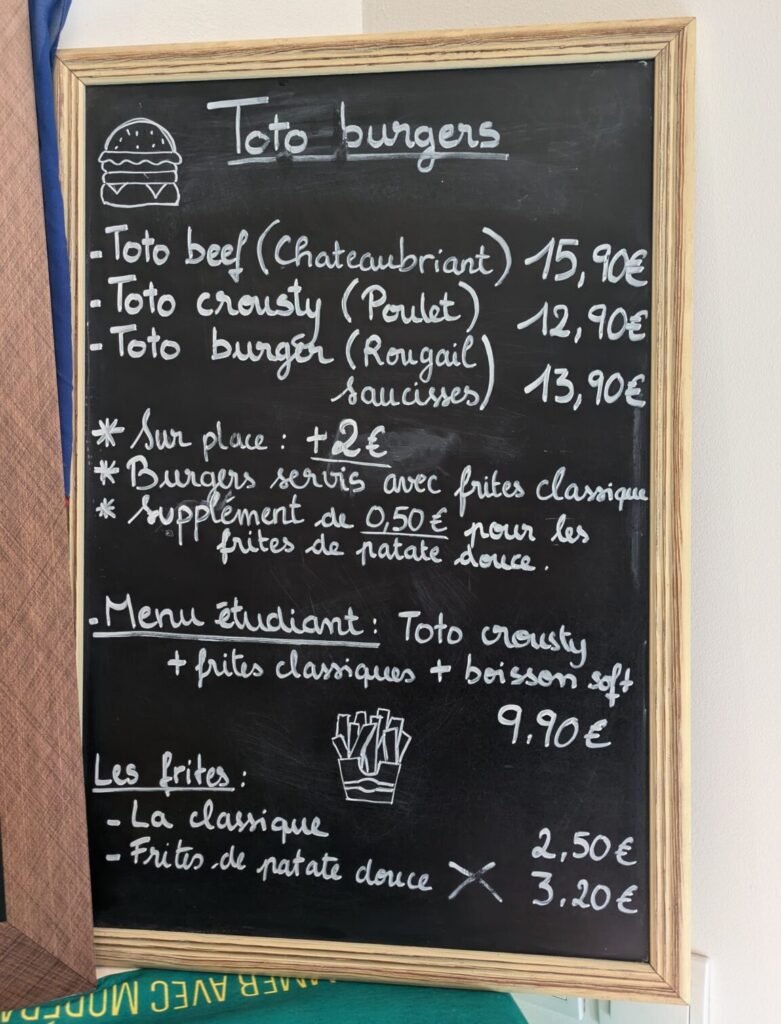 Toto burgers
- Toto beef (Chateaubriant) 15,90€
- Toto crousty (Poulet) 12,90€
- Toto burger (Rougail
saucisses) 13,90€
* Sur place : +2€
* Burgers servis avec frites classique
* Supplément de 0,50€ pour les
frites de patate douce.
- Menu étudiant : Toto crousty
+ frites classiques + boisson soft
9.90€
Les frites :
- La classique 2,50€
- Frites de patate douce X 3.20€
AVEC